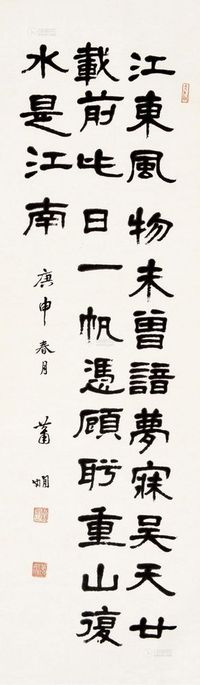 江東風物未曾諳夢寐吴天廿
載前此日一帆憑顧盼重山復
水是江南
庚申春月 蕭嫻